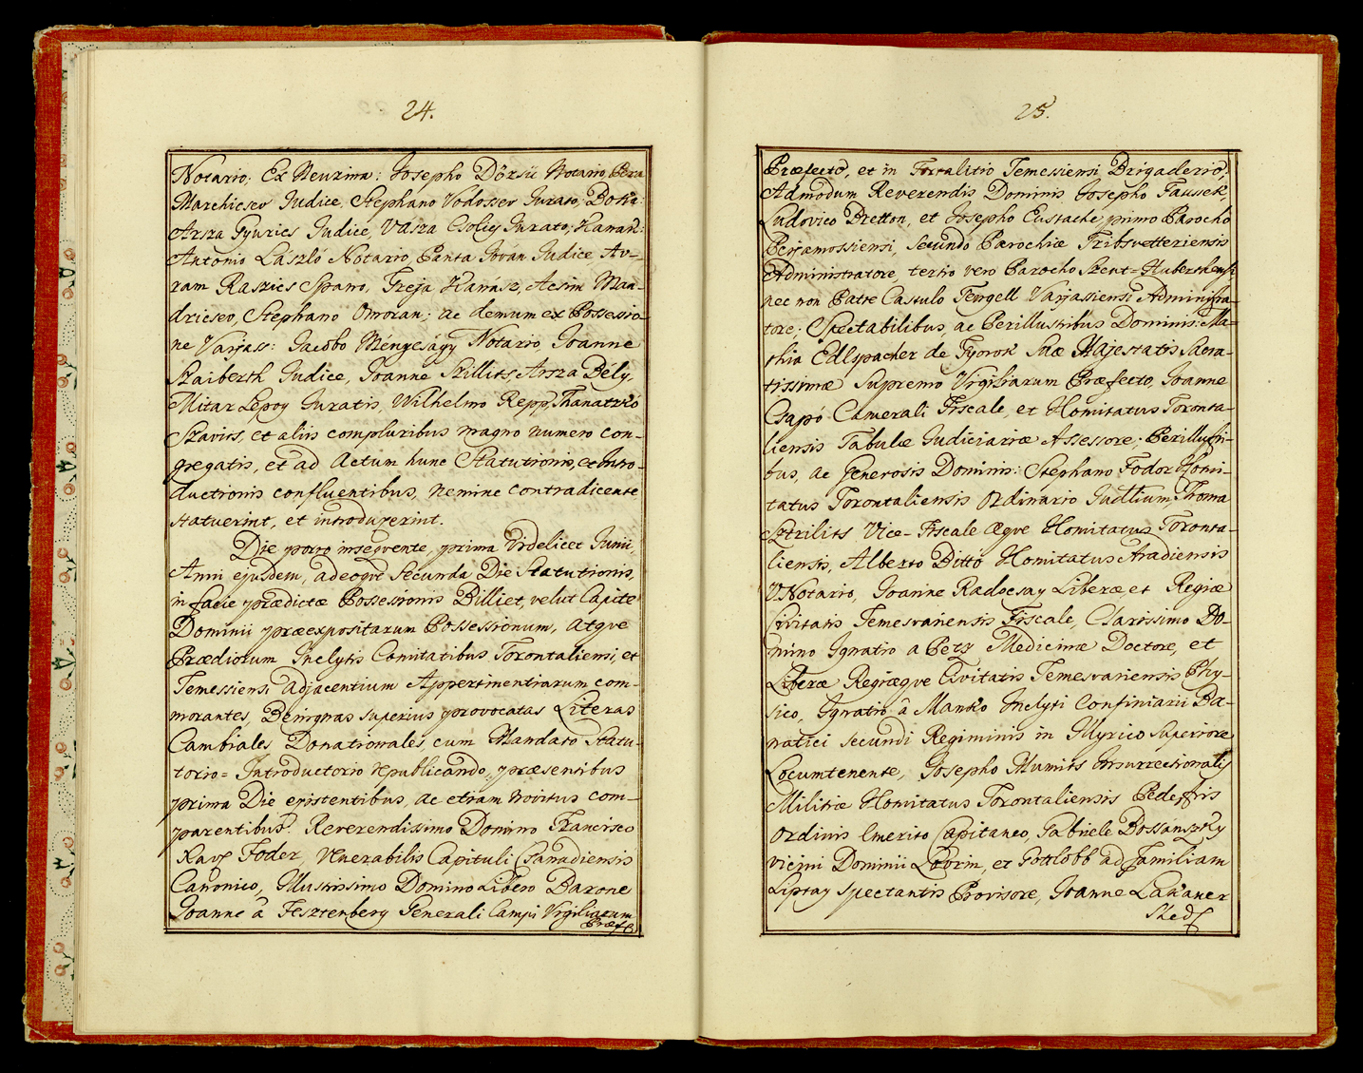 24.
Notario; Ex Neuzina: Josepho Dörsü Notario, Pera
Marchicsev Judice, Stephano Vodosser Jurato; Boka:
Arsza Gyurics Judice, Vasza Csolich Jurato; Kanak:
Antonio Laszló Notario, Panta Jován Judice, Av-
ram Raszics Spano, Treja Kanász, Acsim Man-
dricsev, Stephano Omoran; ac demum ex Possessio-
ne Varjass: Jacobo Mengeságy Notario, Joanne
Szaiberth Judice, Joanne Szillits, Arsza Bely,
Mitar Lepoy Juratis, Wilhelmo Repp, Thanatzkó
Szavits, et aliis compluribus magno numero con-
gregatis, et ad Actum hunc Statutionis, et Intro-
ductionis confluentibus, nemine contradicente
statuerint, et introduxerint.
Die porro insequente, prima videlicet Junii,
Anni ejusdem, adeoque Secunda Die Statutionis,
in facie praedictae Possessionis Billiet, velut Capite
Dominii praeexpositarum Possessionum, atque
Praediorum Inclytis Comitatibus Torontaliensi, et
Temessiensi adjacentium Appertinentiarum com-
morantes, Benignas superius provocatas Literas
Cambiales Donationales, cum Mandato Statu-
torio-Introductorio republicando, praesentibus
prima Die existentibus, ac etiam novitus com-
parentibus: Reverendissimo Domino Francisco
Xav. Foder, Venerabilis Capituli Csanadiensis
Canonico, Illustrissimo Domino Libero Barone
Joanne â Fesztenberg Generali Campi Vigiliarum
Praef.
25.
Praefecto, et in Fortalitio Temessiensi Brigaderio,
Admodum Reverendis Dominis Josepho Taussek,
Ludovico Bretton, et Josepho Eustache, primo Parocho
Perjamossiensi, secundo Parochiae Tribsvetteriensis
Administratore, tertio vero Parocho Szent-Huberthensi
nec non Patre Castulo Tengell Varjasiensi Administra-
tore; Spectabilibus, ac Perillustribus Dominis: Ma-
thia Edlspacher de Gyorok Suae Majestatis Sacra-
tissimae Supremo Vigiliarum Praefecto, Joanne
Csapó Camerali Fiscale, et Comitatus Toronta-
liensis Tabulae Judiciariae Assessore. Perillustri-
bus, ac Generosis Dominis: Stephano Fodor Comi-
tatus Torontaliensis Ordinario Judlium, Thoma
Sztrilits Vice-Fiscale aeque Comitatus Toronta-
liensis, Alberto Bitto Comitatus Aradiensis
VNotario, Joanne Radocsay Liberae et Regiae
Civitatis Temesvariensis Fiscale, Clarissimo Do-
mino Ignatio a Pers Medicinae Doctore, et
Liberae Regiaeque Civitatis Temesvariensis Phy-
sico, Ignatio â Manko Inclyti Confiniarii Ba-
natici secundi Regiminis in Illyrico Superiore
Locumtenente, Josepho Mumits Insurrectionalis
Militiae Comitatus Torontaliensis Pedestris
Ordinis Emerito Capitaneo, Gabriele Bossanszky
vicini Dominii Lovrin, et Gottlobb ad Familiam
Liptay spectantis Provisore, Joanne Lakaner